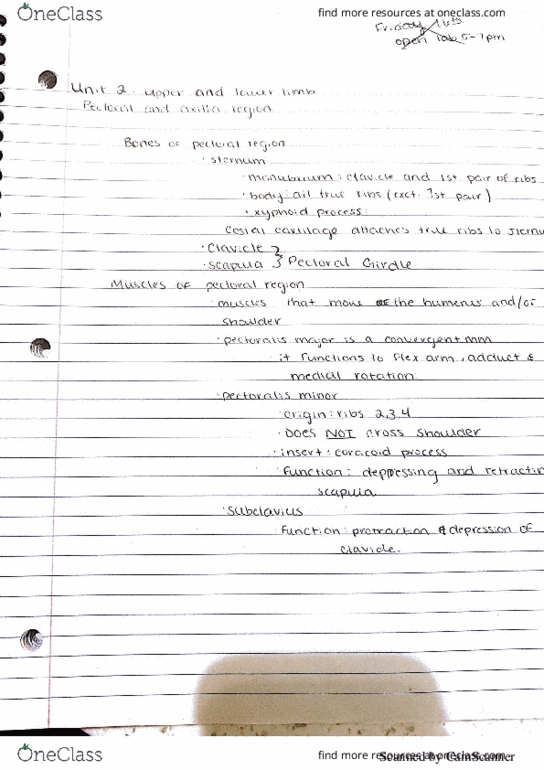 OneClass
find more resources at oneclass.com
Friday 16th
open lab 5-7pm
Unit 2 upper and lower limb
Pectoral and axilla region
Bones of pectoral region
· sternum
· manubrium: clavicle and 1st pair of ribs
· body: all true ribs (exct. 1st pair)
· xyphoid process:
Costal cartilage attaches true ribs to sternu
· Clavicle }
· scapula } Pectoral Girdle
Muscles of pectoral region
· muscles that move the humerus and/or
shoulder
· pectoralis major is a convergent mm
it functions to flex arm, adduct &
medial rotation
· pectoralis minor
· origin: ribs 2,3,4
· Does NOT cross shoulder
· insert: coracoid process
· Function: depressing and retractin
scapula
· Subclavius
Function: protraction & depression of
clavicle.
OneClass
find more resources at oneclass.com
Scanned by CamScanner